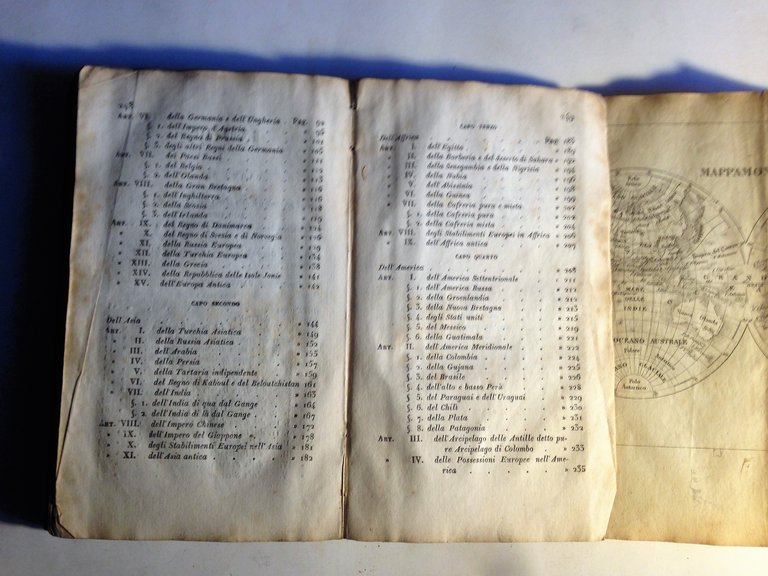 298
ART. VI. della Germania e dell'Ungheria . Pag. 92
§. 1. dell'Impero d'Austria . . » 96
§. 2. del Regno di Prussia . . » 101
§. 3. degli altri Regni della Germania » 105
ART. VII. dei Paesi Bassi . . . » 111
§. 1. del Belgio . . . » 111
§. 2. dell'Olanda . . . »
ART. VIII. della Gran Bretagna . . »
§. 1. dell'Inghilterra . . »
§. 2. della Scozia . . . »
§. 3. dell'Irlanda . . . »
ART. IX. del Regno di Danimarca . . »
» X. del Regno di Svezia e di Norvegia »
» XI. della Russia Europea . . »
» XII. della Turchia Europea . . » 134
» XIII. della Grecia . . . » 138
» XIV. della Repubblica delle Isole Ionie » 141
» XV. dell'Europa Antica . . » 142
CAPO SECONDO
Dell'Asia . . . . » 144
ART. I. della Turchia Asiatica . . » 149
» II. della Russia Asiatica . . » 152
» III. dell'Arabia . . . » 155
» IV. della Persia . . . » 157
» V. della Tartaria indipendente . » 159
» VI. del Regno di Kaboul e del Beloutchistan 161
» VII. dell'India . . . » 163
§. 1. dell'India di qua dal Gange . » 164
§. 2. dell'India di là dal Gange . » 167
ART. VIII. dell'Impero Chinese . . » 172
» IX. dell'Impero del Giappone . » 178
» X. degli Stabilimenti Europei nell'Asia » 181
» XI. dell'Asia antica . . » 182
CAPO TERZO
Dell'Affrica . . . Pag. 185
ART. I. dell'Egitto . . . » 189
» II. della Barbaria e del deserto di Sahara » 192
» III. della Senegambia e della Nigrizia »
» IV. della Nubia . . . »
» V. dell'Abissinia . . . »
» VI. della Guinea . . . »
» VII. della Cafreria pura e mista . »
§. 1. della Cafreria pura . . »
§. 2. della Cafreria mista . . »
ART. VIII. degli Stabilimenti Europei in Affrica » 206
» IX. dell'Affrica antica . . » 207
CAPO QUARTO
Dell'America . . . . » 208
ART. I. dell'America Settentrionale . » 211
§. 1. dell'America Russa . . » 212
§. 2. della Groenlandia . . » 212
§. 3. della Nuova Bretagna . . » 213
§. 4. degli Stati uniti . . » 215
§. 5. del Messico . . . » 219
§. 6. della Guatimala . . » 221
ART. II. dell'America Meridionale . » 222
§. 1. della Colombia . . » 224
§. 2. della Gujana . . . » 225
§. 3. del Brasile . . . » 226
§. 4. dell'alto e basso Perù . . » 228
§. 5. del Paraguai e dell'Uraguai . » 229
§. 6. del Chilì . . . » 230
§. 7. della Plata . . . » 231
§. 8. della Patagonia . . » 232
ART. III. dell'Arcipelago delle Antille detto pu-
re Arcipelago di Colombo . » 233
» IV. delle Possessioni Europee nell'Ame-
rica . . . . » 235
MAPPAMON
Polo
Artico
GRANDE
MARE
DELLE
INDIE
OCEANO AUSTRALE
Polare
OCEANO GLACIALE
Polo
Antartico